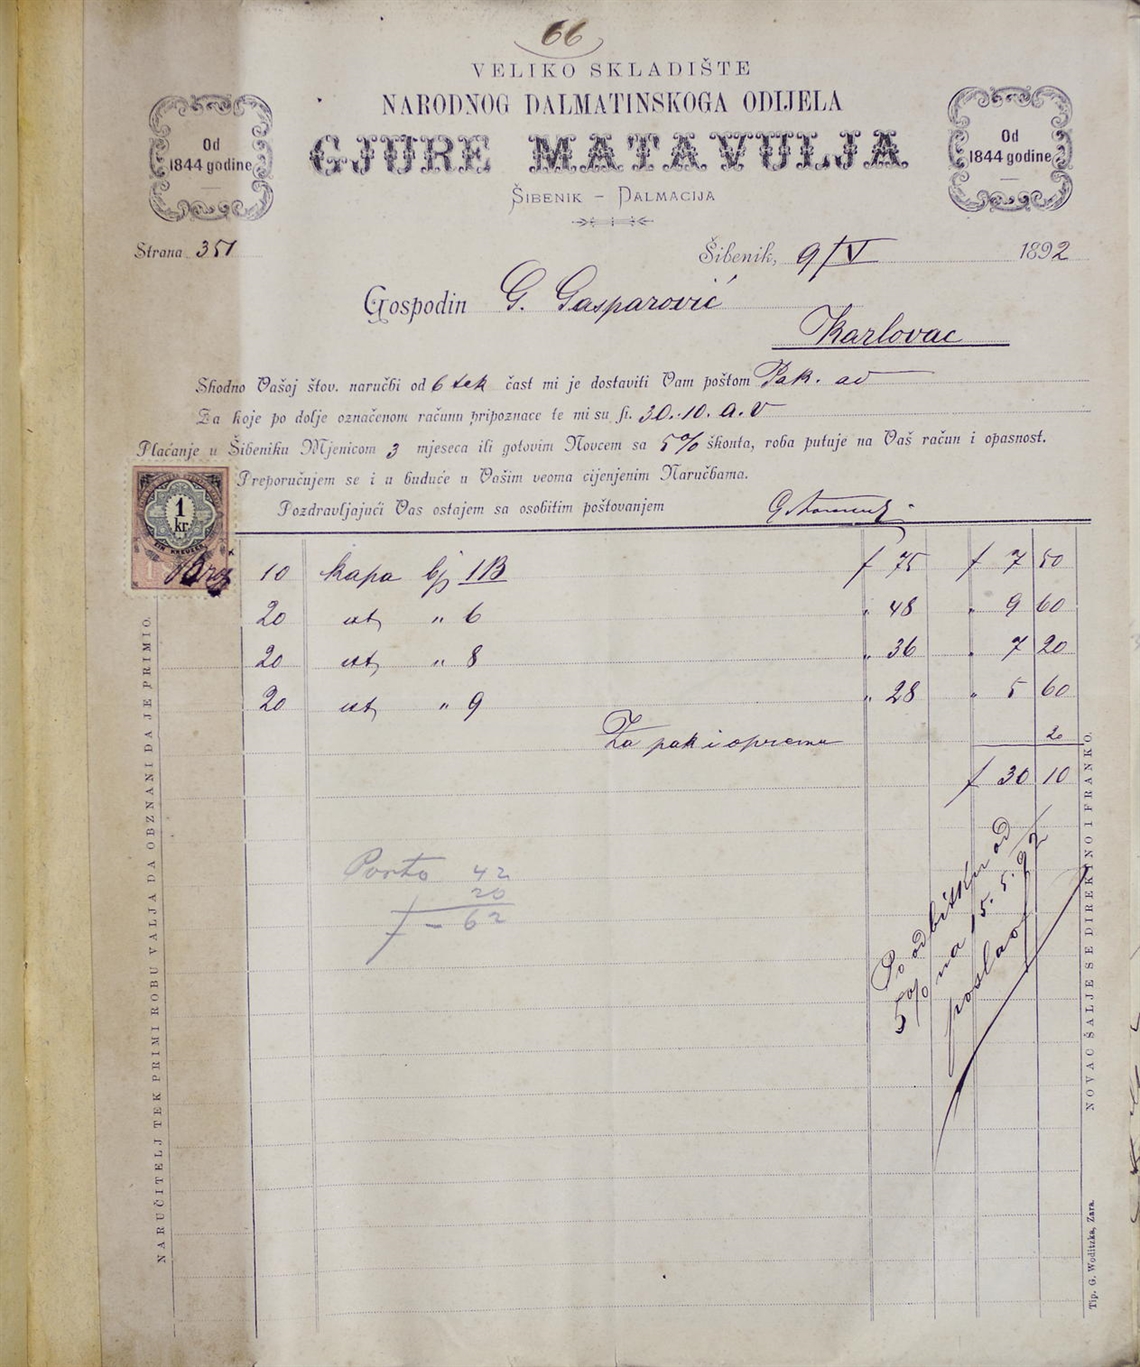 66
VELIKO SKLADIŠTE
NARODNOG DALMATINSKOGA ODIJELA
GJURE MATAVULJA
ŠIBENIK – DALMACIJA
Od
1844 godine
Od
1844 godine
Strana 351
Šibenik, 9/V 1892
Gospodin G. Gasparović
Karlovac
Shodno Vašoj štov. naručbi od 6 tek čast mi je dostaviti Vam poštom Pak. ad
Za koje po dolje označenom računu pripoznace te mi su fi. 30.10. a.v
Plaćanje u Šibeniku Mjenicom 3 mjeseca ili gotovim Novcem sa 5% škonta, roba putuje na Vaš račun i opasnost.
Preporučujem se i u buduće u Vašim veoma cijenjenim Naručbama.
Pozdravljajući Vas ostajem sa osobitim poštovanjem
1
kr.
EIN KREUZER
Broj
10 kapa bj 1B f 75 f 7 50
20 " 6 " 48 " 9 60
20 " 8 " 36 " 7 20
20 " 9 " 28 " 5 60
Za pak i opremu 20
f 30 10
Porto 42
20
f – 62
Po odbitku od
5% na 15.5.92
poslao
NARUČITELJ TEK PRIMI ROBU VALJA DA OBZNANI DA JE PRIMIO.
NOVAC ŠALJE SE DIREKTNO I FRANKO.
Tip. G. Woditzka, Zara.